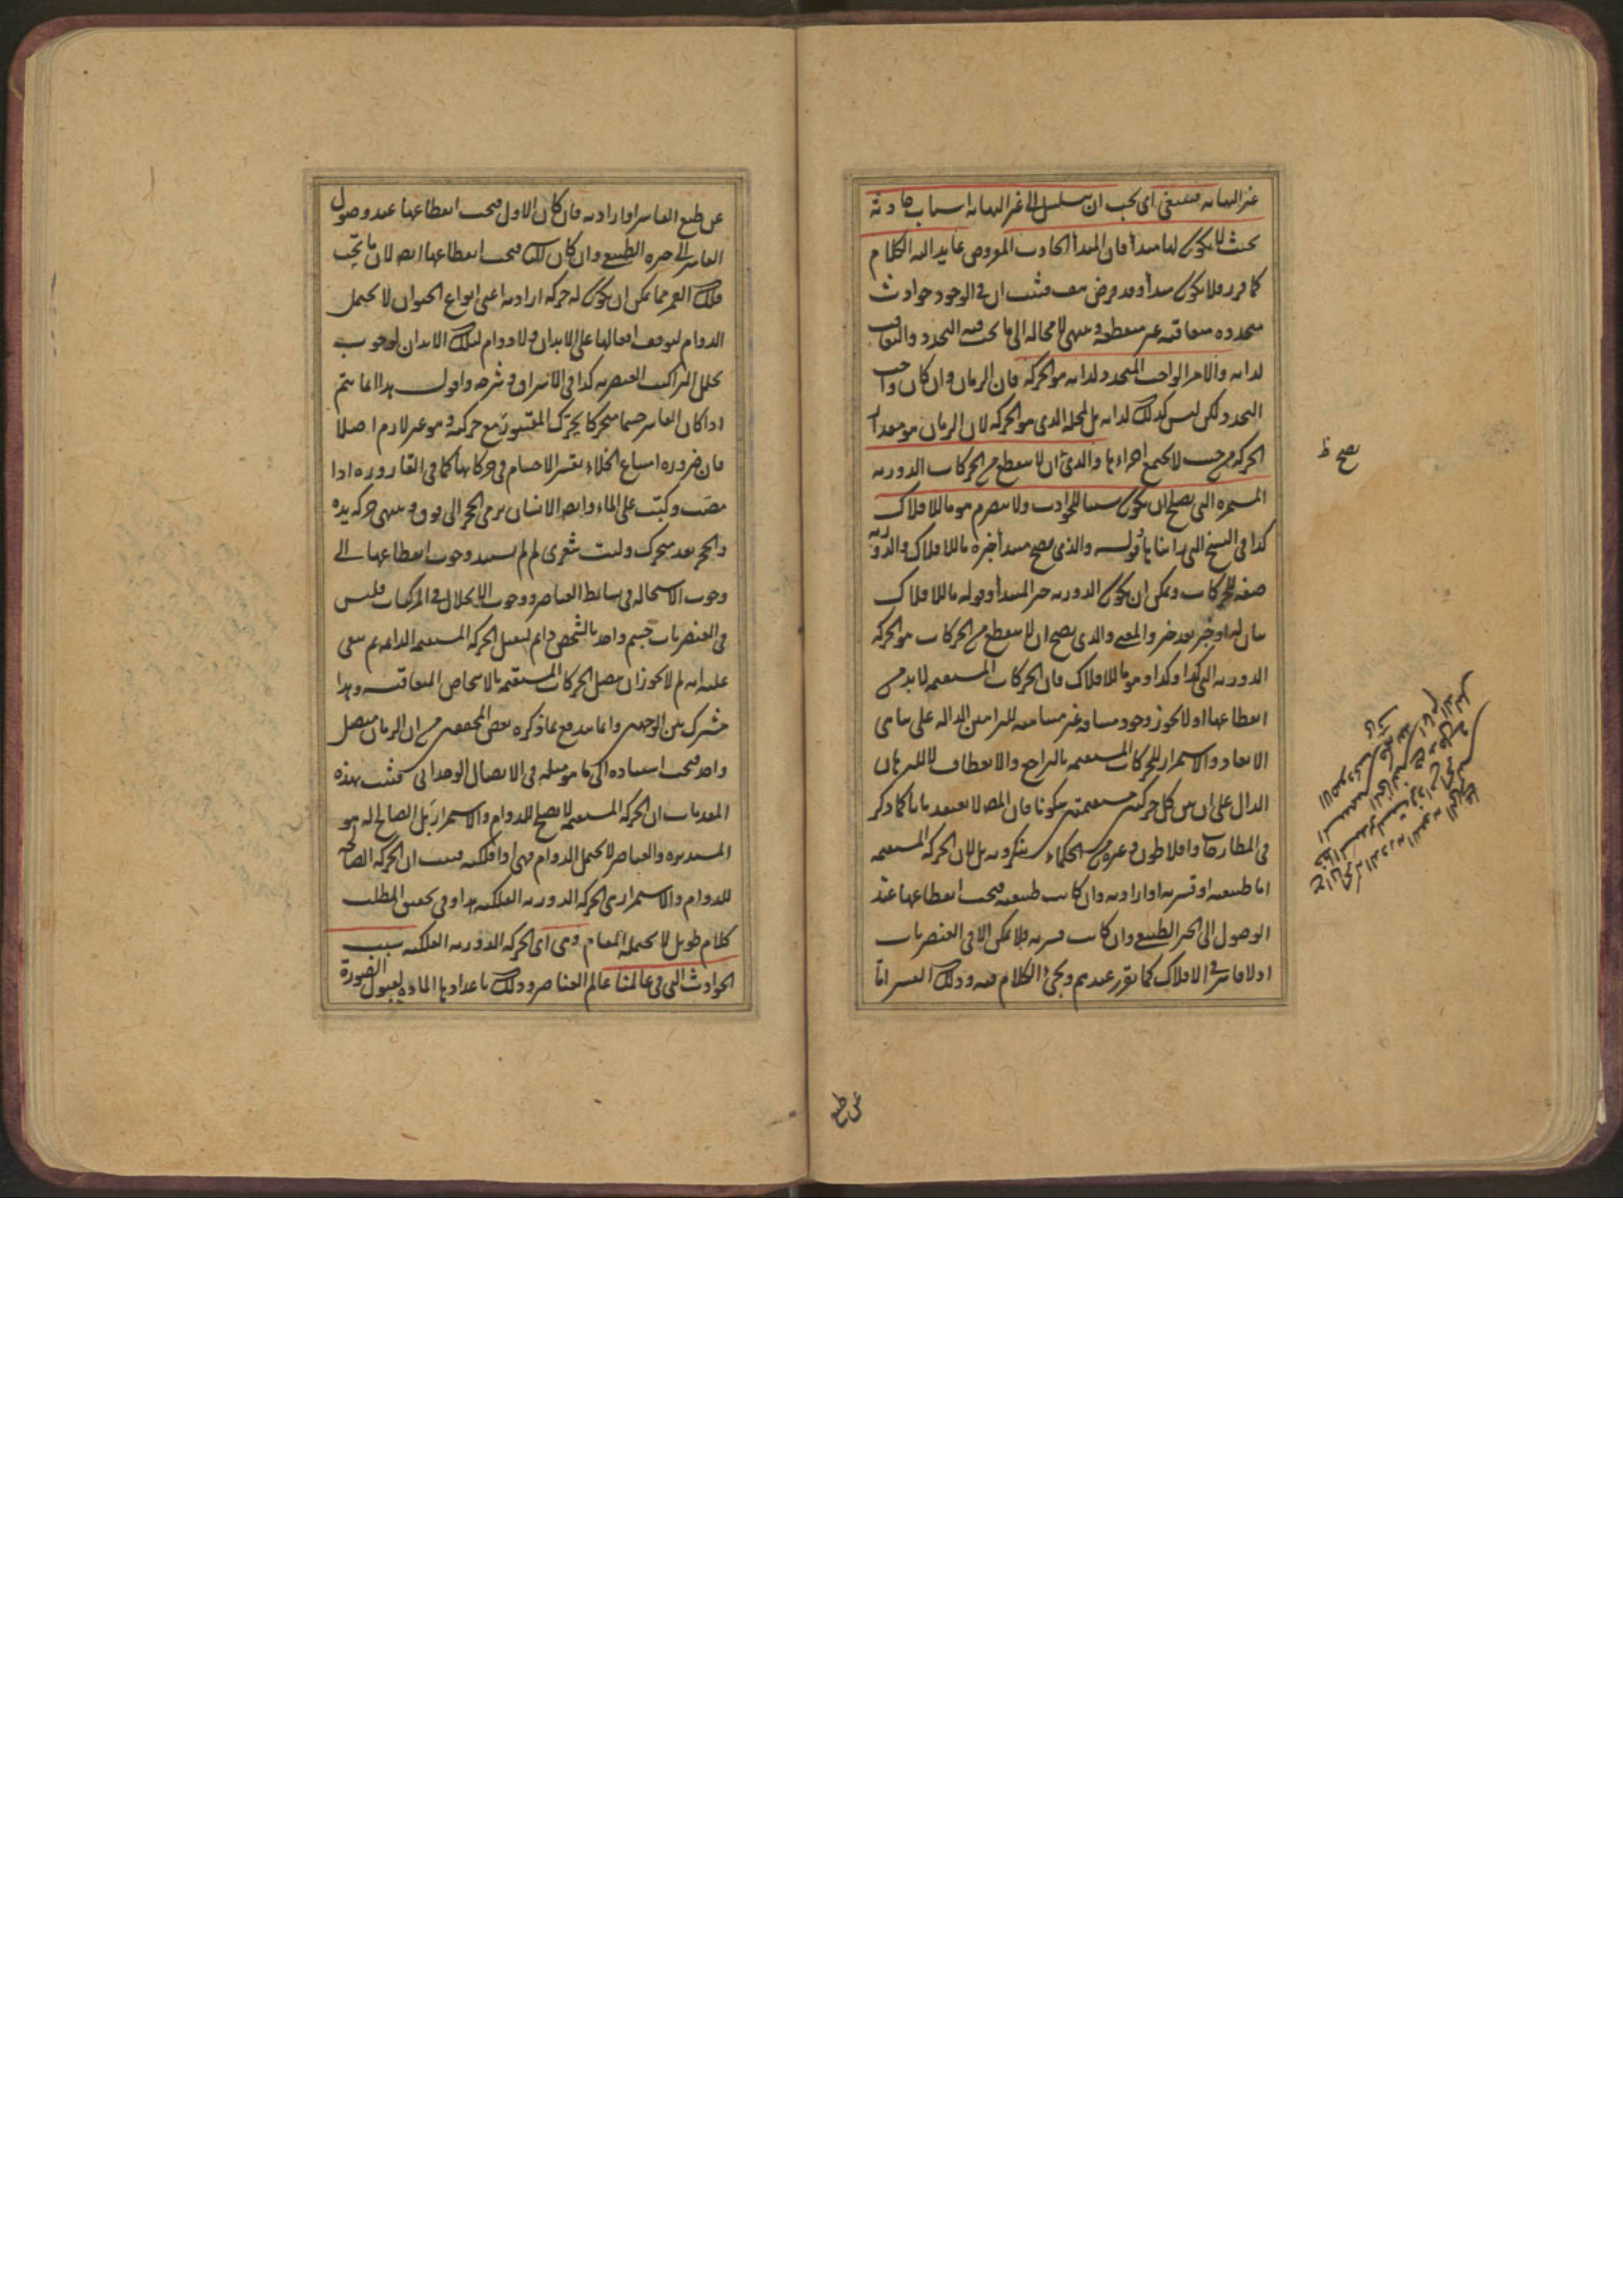 غير النهاية فينبغي اى يجب ان يتسلسل الى غير النهاية اسباب حادثة
بحيث لا يكون لها مبدأ فان المبدأ الحادث المفروض عايد اليه الكلام
كما قرر فلا يكون مبدأ وقد فرض هف فثبت ان في الوجود حوادث
متجددة متعاقبة غير منقطعة وينتهى لا محالة الى ما يجب فيه التجدد والتعاقب
لذاته والامر الواجب التجدد لذاته هو الحركة فان الزمان وان كان واجب
التجدد لكن ليس كذلك لذاته بل لمحله الذى هو الحركة لان الزمان هو مقدار
الحركة من حيث لا يجتمع اجزاءها والذى ان لا ينقطع من الحركات الدورية
المستمرة التى يصلح ان يكون سببا للحوادث ولا ينصرم هو ما للافلاك
كذا في النسخ التى راينا بها قوله والذى يصح مبتدأ خبره ما للافلاك والدورية
صفة للحركات ويمكن ان يكون الدورية خبر المبتدأ وقوله ما للافلاك
بيان لها او خبر بعد خبر والمعنى والذى يصح ان لا ينقطع من الحركات هو الحركة
الدورية التى كذا وكذا وهو ما للافلاك فان الحركات المستقيمة لا بد من
انقطاعها اذ لا يجوز وجود مسافة غير متناهية للبراهين الدالة على تناهى
الابعاد والاستمرار للحركات المستقيمة بالتراجع والانعطاف لا للبرهان
الدال على ان بين كل حركتين مستقيمتين سكونا فان المص لا يعتقد بها كما ذكر
في المطارحات وافلاطون وغيره من الحكماء ينكرونه بل لان الحركة المستقيمة
اما طبيعية او قسرية او ارادية وان كانت طبيعية فيجب انقطاعها عند
الوصول الى الحيز الطبيعى وان كانت قسرية فلا يمكن الا في العنصريات
اذ لا قاسر في الافلاك كما تقرر عندهم ويجئ الكلام فيه وذلك القسر اما
يصح ظ
عن طبع
عن طبع القاسر او ارادته فان كان الاول فيجب انقطاعها عند وصول
القاسر الى حيزه الطبيعى وان كان كذلك فيجب انقطاعها ايضا لان ما تحت
فلك القمر مما يمكن ان يكون له حركة ارادية اعنى انواع الحيوان لا يحتمل
الدوام لتوقف افعالها على الابدان ولا دوام لتلك الابدان لوجوب
تحلل التراكيب العنصرية كذا في الاشراق وشرحه واقول هذا انما يتم
اذا كان القاسر جسما متحركا يحرك المقسور مع حركته وهو غير لازم اصلا
فان ضرورة امتناع الخلاء يقسر الاجسام في حركاتها كما في القارورة اذا
مصت وكبت على الماء وايضا الانسان يرمى الحجر الى فوق وينتهى حركة يده
والحجر بعد متحرك وليت شعرى لم لم يستند وجوب انقطاعها الى
وجوب الاستحالة في بسائط العناصر ووجوب الانحلال في المركبات فليس
في العنصريات جسم واحد بالشخص دائم ليقبل الحركة المستقيمة الدائمة ثم بقى
عليه انه لم لا يجوز ان يتصل الحركات المستقيمة بالاشخاص المتعاقبة وهذا
مشترك بين الوجهين وانما يندفع بما ذكره بعض المحققين من ان الزمان متصل
واحد فيجب استناده الى ما هو مثله في الاتصال الوحدانى فثبت بهذه
المقدمات ان الحركة المستقيمة لا تصلح للدوام والاستمرار بل الصالح له هو
المستديرة والعناصر لا يحتمل الدوام فهى اذا فلكية فثبت ان الحركة الصالحة
للدوام والاستمرار هى الحركة الدورية الفلكية هذا وفي تحقيق المطلب
كلام طويل لا يحتمله المقام وهى اى الحركة الدورية الفلكية سبب
الحوادث التى في عالمنا عالم العناصر وذلك باعدادها المادة لقبول الصورة